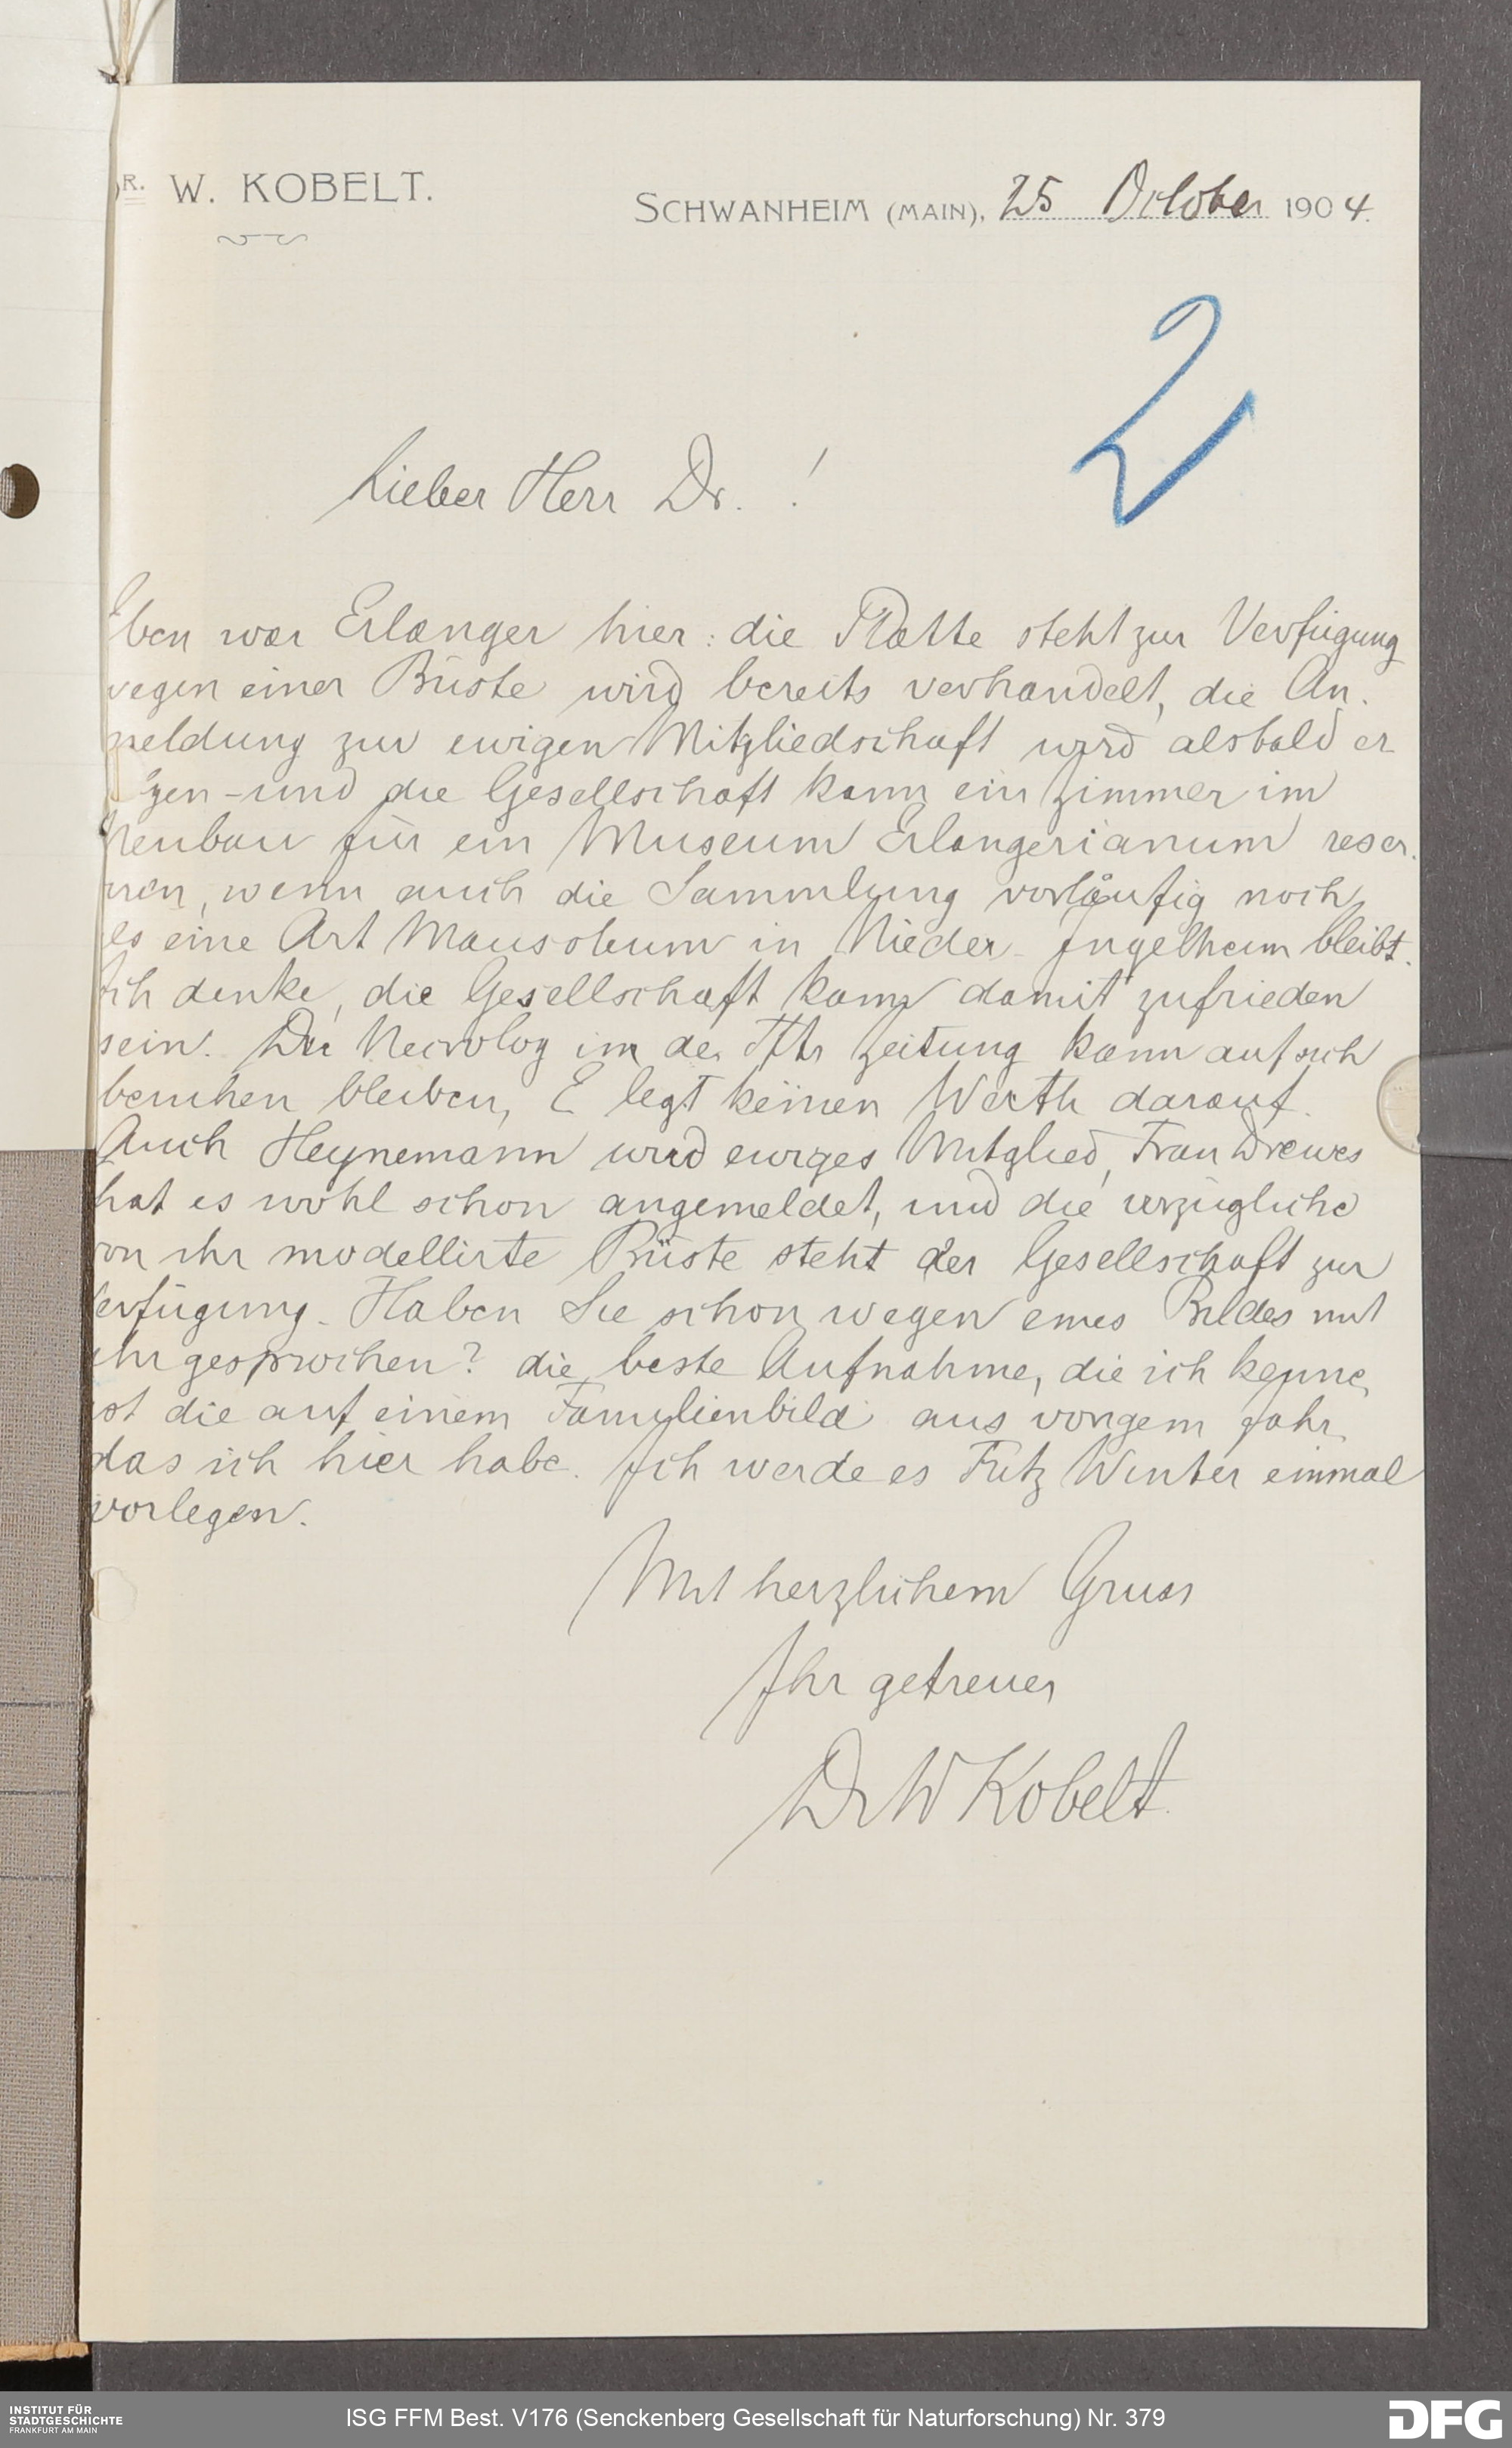 DR. W. KOBELT.
SCHWANHEIM (MAIN), 25 October 1904.
2
Lieber Herr Dr. !
Eben war Erlanger hier: die Platte steht zur Verfügung
wegen einer Büste wird bereits verhandelt, die An-
meldung zur ewigen Mitgliedschaft wird alsbald er
gen - und die Gesellschaft kann ein Zimmer im
Neubau für ein Museum Erlangerianum reser-
viren, wenn auch die Sammlung vorläufig noch
als eine Art Mausoleum in Nieder-Ingelheim bleibt.
Ich denke, die Gesellschaft kann damit zufrieden
sein. Der Necrolog im der Zeitung kann auf sich
beruhen bleiben, E legt keinen Werth darauf.
Auch Heynemann wird ewiges Mitglied, Frau Drewes
hat es wohl schon angemeldet, und die vorzügliche
von ihr modellirte Büste steht der Gesellschaft zur
Verfügung. Haben Sie schon wegen eines Bildes mit
ihr gesprochen? die beste Aufnahme, die ich kenne,
ist die auf einem Familienbild aus vorigem Jahr,
das ich hier habe. Ich werde es Fritz Winter einmal
vorlegen.
Mit herzlichem Gruss
Ihr getreuer
Dr W Kobelt.
INSTITUT FÜR
STADTGESCHICHTE
FRANKFURT AM MAIN
ISG FFM Best. V176 (Senckenberg Gesellschaft für Naturforschung) Nr. 379
DFG